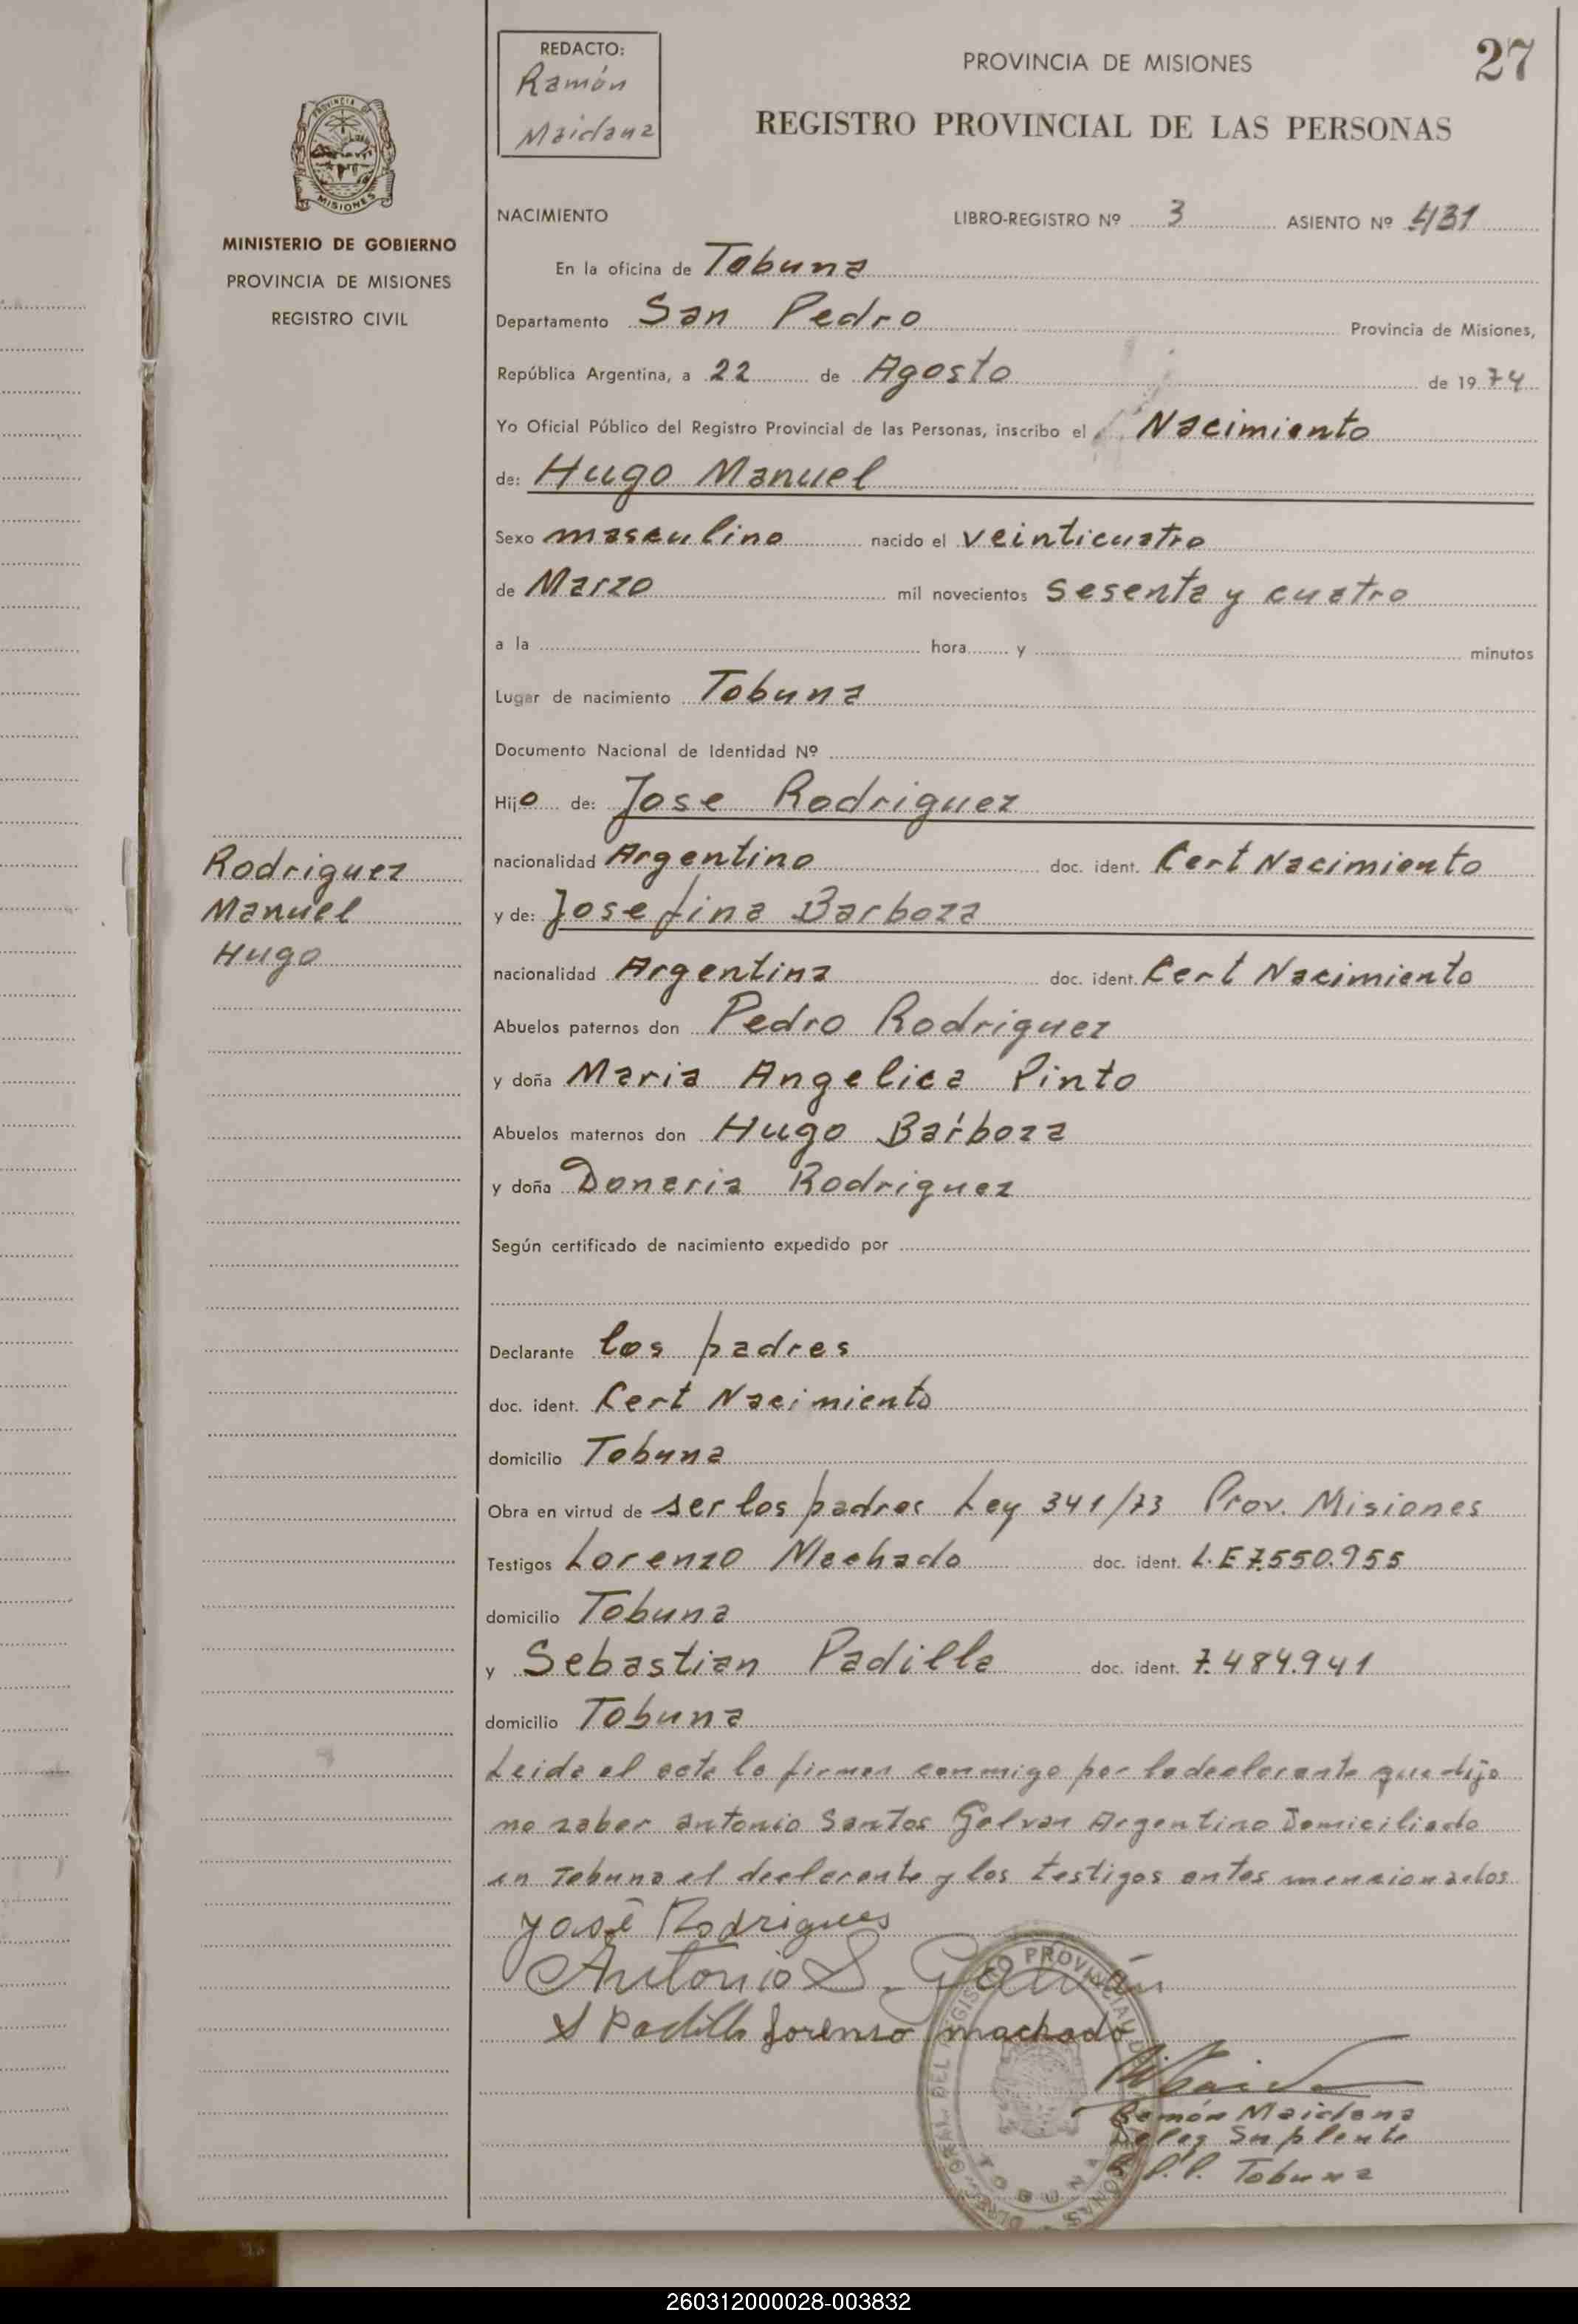 REDACTO:
Ramón
Maidana
PROVINCIA DE MISIONES
27
REGISTRO PROVINCIAL DE LAS PERSONAS
PROVINCIA DE
MISIONES
MINISTERIO DE GOBIERNO
PROVINCIA DE MISIONES
REGISTRO CIVIL
NACIMIENTO LIBRO-REGISTRO Nº 3 ASIENTO Nº 431
En la oficina de Tobuna
Departamento San Pedro Provincia de Misiones,
República Argentina, a 22 de Agosto de 1974
Yo Oficial Público del Registro Provincial de las Personas, inscribo el Nacimiento
de: Hugo Manuel
Sexo masculino nacido el veinticuatro
de Marzo mil novecientos sesenta y cuatro
a la hora y minutos
Lugar de nacimiento Tobuna
Documento Nacional de Identidad Nº
Hijo de: Jose Rodriguez
nacionalidad Argentino doc. ident. Cert Nacimiento
y de: Josefina Barboza
nacionalidad Argentina doc. ident. Cert Nacimiento
Abuelos paternos don Pedro Rodriguez
y doña Maria Angelica Pinto
Abuelos maternos don Hugo Barboza
y doña Doneria Rodriguez
Según certificado de nacimiento expedido por
Rodriguez
Manuel
Hugo
Declarante los padres
doc. ident. Cert Nacimiento
domicilio Tobuna
Obra en virtud de ser los padres Ley 341/73 Prov. Misiones
Testigos Lorenzo Machado doc. ident. L.E 7.550.955
domicilio Tobuna
y Sebastian Padilla doc. ident. 7.484.941
domicilio Tobuna
Leida el acta la firman conmigo por la declarante que dijo
no saber antonio Santos Galvan Argentino Domiciliado
en Tobuna el declarante y los testigos antes mencionados
José Rodrigues
Antonio S. Galván
S Padilla Lorenso machado
Ramón Maidana
Deleg Suplente
R.P.P. Tobuna
TOBUNA
260312000028-003832